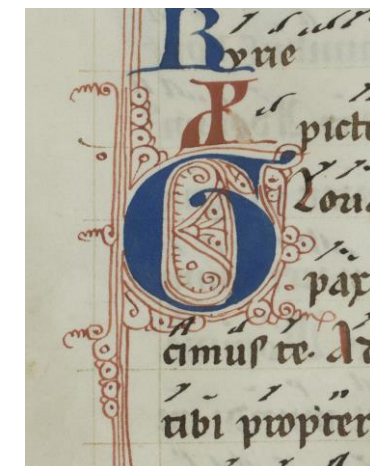 Kyrie
pict
Glori
pax
cimuſ te. Ad
tibi propter